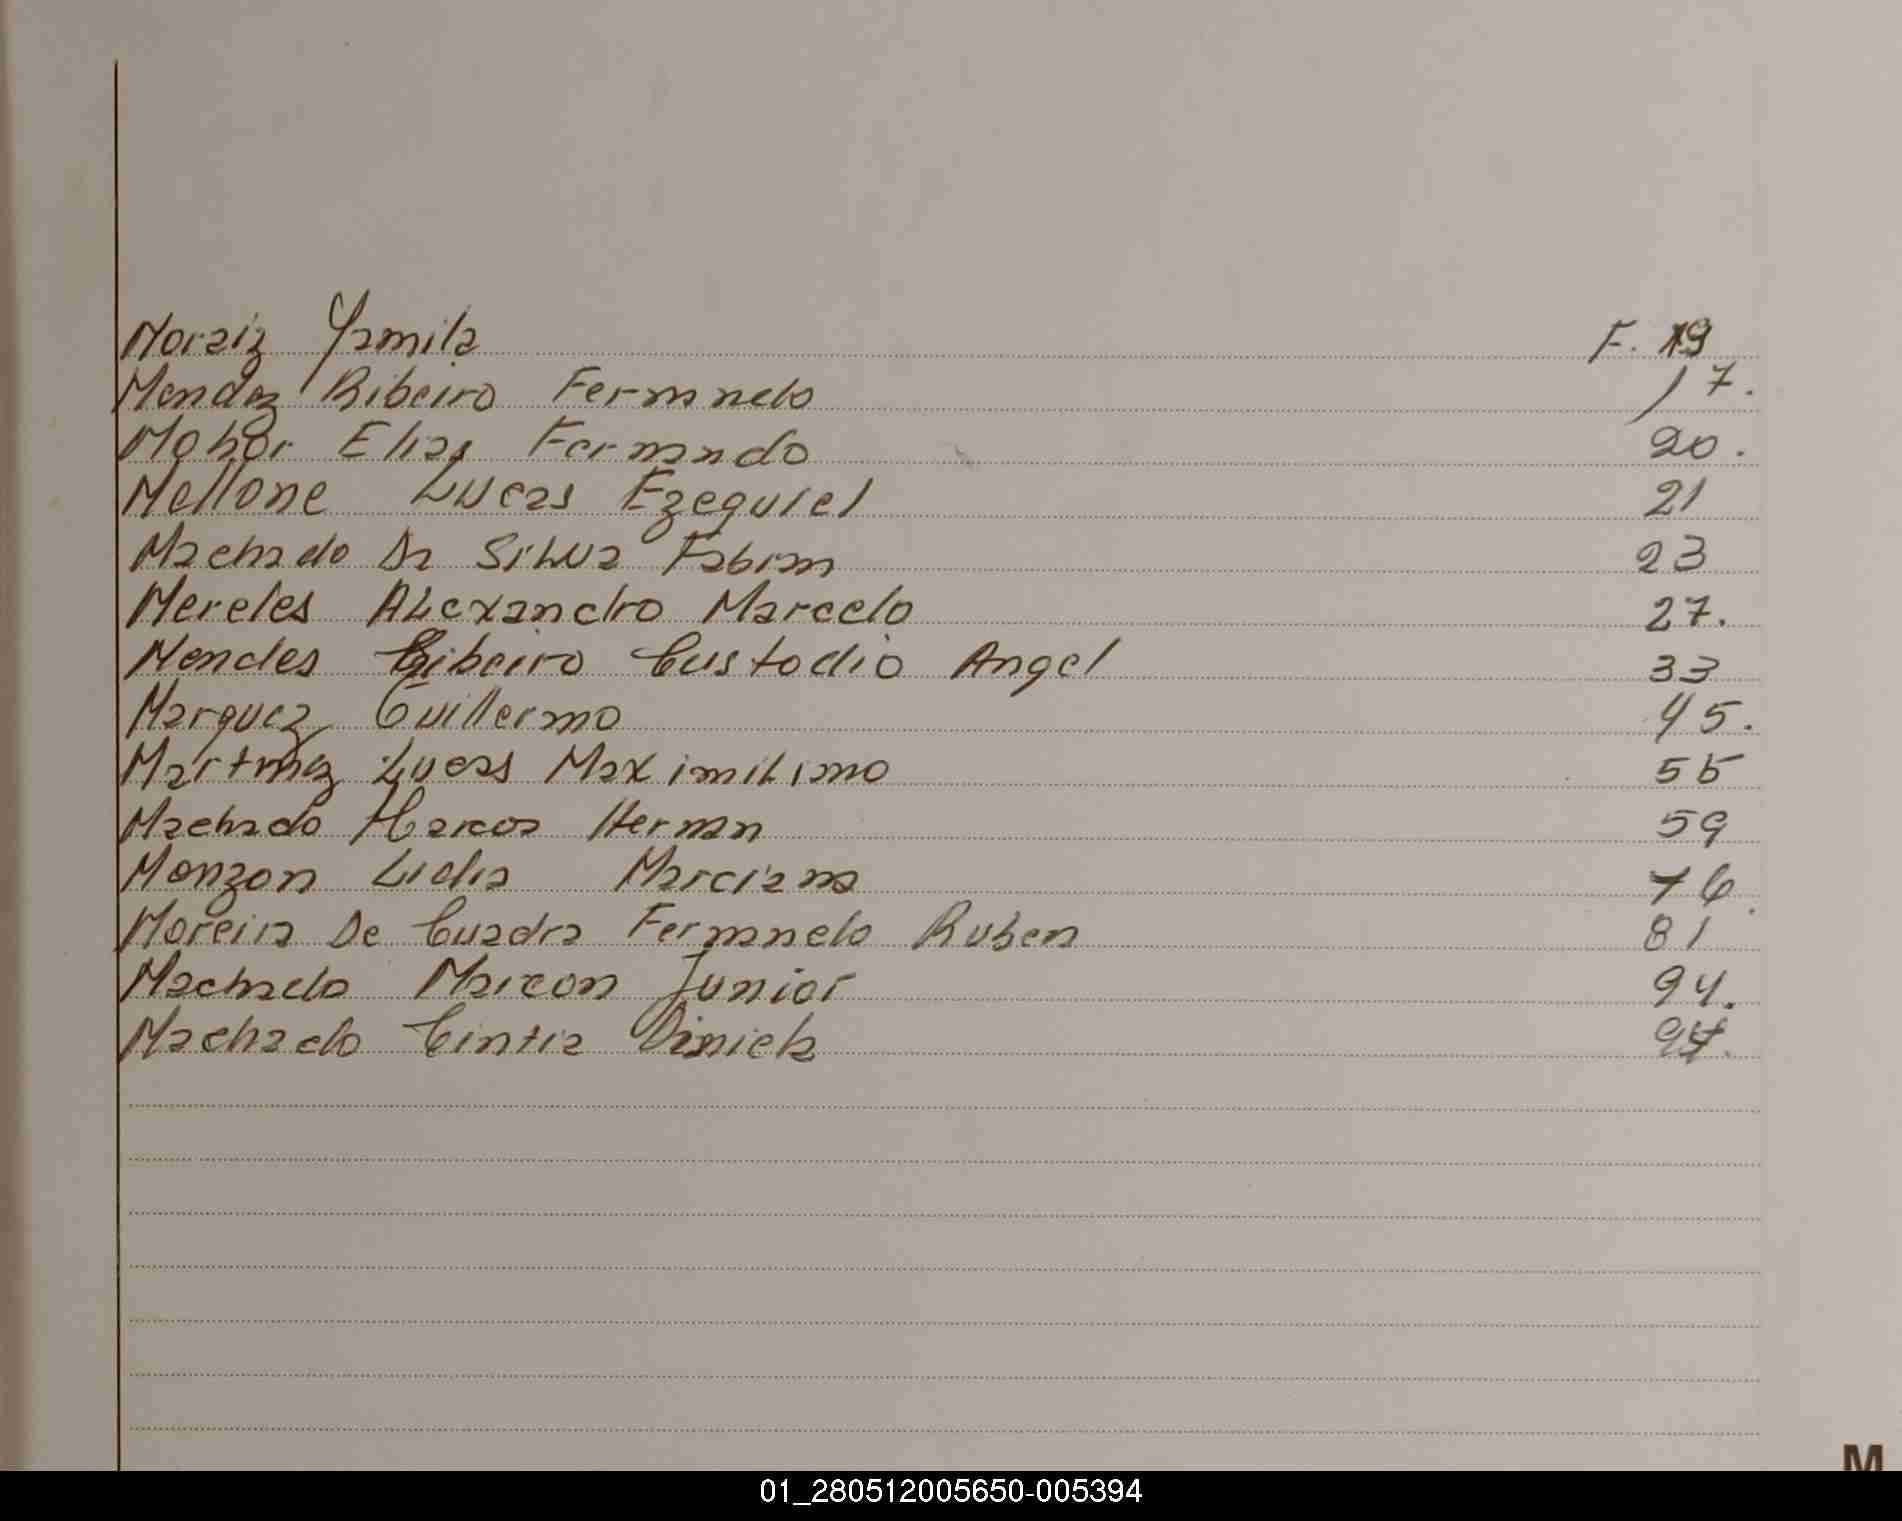 Moraiz Yamila F. 19
Mendez Ribeiro Fernando 17.
Mohor Elias Fernando 20.
Mellone Lucas Ezequiel 21
Machado Da Silva Fabian 23
Mereles Alexandro Marcelo 27.
Mendes Ribeiro Custodio Angel 33
Marquez Guillermo 45.
Martinez Lucas Maximiliano 55
Machado Marcos Hernan 59
Monzon Lidia Marciana 76
Moreira De Cuadra Fernando Ruben 81
Machado Maicon Junior 94.
Machado Cintia Daniela
M
01_280512005650-005394